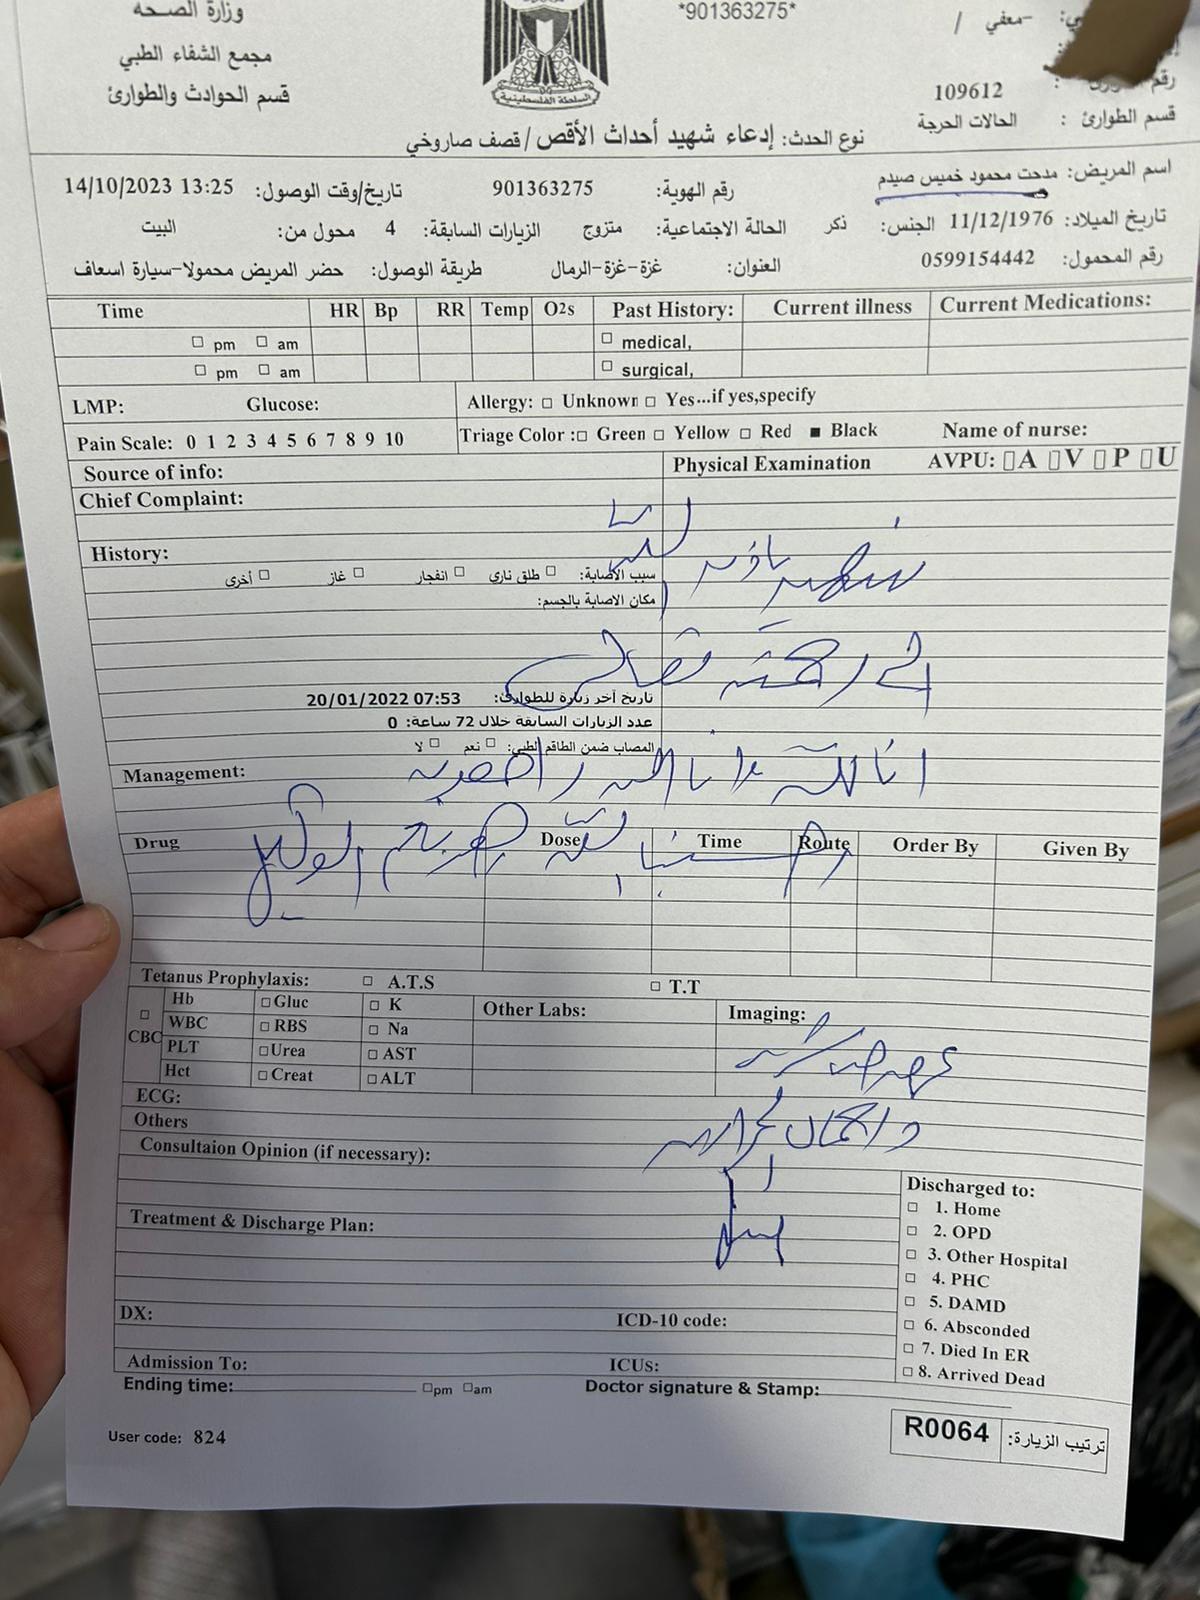 وزارة الصحه
مجمع الشفاء الطبي
قسم الحوادث والطوارئ
السلطة الفلسطينية
*901363275*
-معفي /
رقم : 109612
قسم الطوارئ : الحالات الحرجة
نوع الحدث: إدعاء شهيد أحداث الأقص / قصف صاروخي
اسم المريض: مدحت محمود خميس صيدم رقم الهوية: 901363275 تاريخ/وقت الوصول: 14/10/2023 13:25
تاريخ الميلاد: 11/12/1976 الجنس: ذكر الحالة الاجتماعية: متزوج الزيارات السابقة: 4 محول من: البيت
رقم المحمول: 0599154442 العنوان: غزة-غزة-الرمال طريقة الوصول: حضر المريض محمولا-سيارة اسعاف
Time HR Bp RR Temp O2s Past History: Current illness Current Medications:
□ pm □ am □ medical,
□ pm □ am □ surgical,
LMP: Glucose: Allergy: □ Unknown □ Yes...if yes,specify
Pain Scale: 0 1 2 3 4 5 6 7 8 9 10 Triage Color :□ Green □ Yellow □ Red ■ Black Name of nurse:
Source of info: Physical Examination AVPU: ▯A ▯V ▯P ▯U
Chief Complaint:
History:
سبب الاصابة: □ طلق ناري □ انفجار □ غاز □ أخرى
شهيد باذن الله
مكان الاصابة بالجسم:
الى رحمته تعالى
تاريخ آخر زيارة للطوارئ: 20/01/2022 07:53
عدد الزيارات السابقة خلال 72 ساعة: 0
المصاب ضمن الطاقم الطبي: □ نعم □ لا
انا لله وانا اليه راجعون
Management:
حسبنا الله ونعم الوكيل
Drug Dose Time Route Order By Given By
Tetanus Prophylaxis: □ A.T.S □ T.T
□ CBC Hb □ Gluc □ K Other Labs: Imaging:
WBC □ RBS □ Na
PLT □ Urea □ AST
Hct □ Creat □ ALT
ECG:
Others
Consultaion Opinion (if necessary):
Discharged to:
□ 1. Home
□ 2. OPD
□ 3. Other Hospital
□ 4. PHC
□ 5. DAMD
□ 6. Absconded
□ 7. Died In ER
□ 8. Arrived Dead
Treatment & Discharge Plan:
DX: ICD-10 code:
Admission To: ICUs:
Ending time: □pm □am Doctor signature & Stamp:
User code: 824
ترتيب الزيارة: R0064